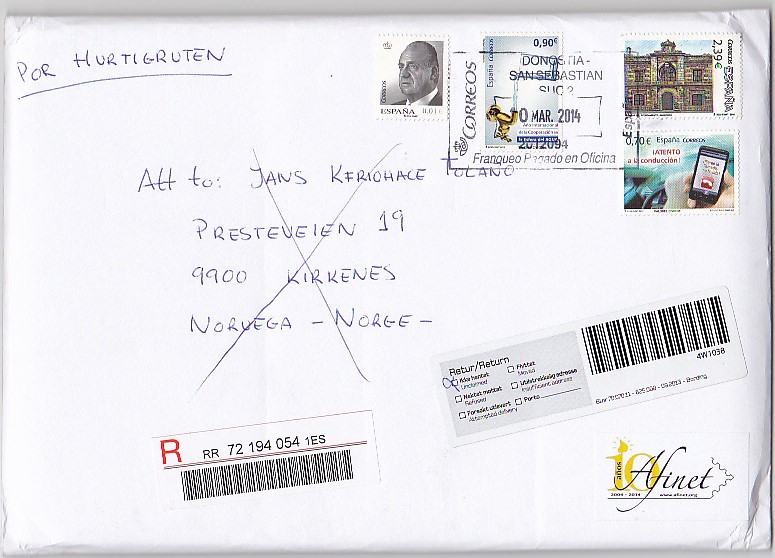 POR HURTIGRUTEN
CORREOS
0,01€
España
0,90€
CORREOS
Año Internacional
de la Cooperación en
la Esfera del AGUA
CORREOS
DONOSTIA-
SAN SEBASTIAN
SUC 2
0 MAR. 2014
2012094
Franqueo Pagado en Oficina
2,39€
CORREOS
ESPAÑA
0,70 € España CORREOS
¡ATENTO
a la conducción!
Att to: JANS KERIOHALE TOLANO
PRESTEVEIEN 19
9900 KIRKENES
NORUEGA - NORGE -
Retur/Return
Ikke hentet
Unclaimed
Flyttet
Moved
Nektet mottatt
Refused
Utilstrekkelig adresse
Insufficient address
Forsøkt utlevert
Attempted delivery
Porto
4W1038
R RR 72 194 054 1ES
10 años Afinet
2004 - 2014 www.afinet.org